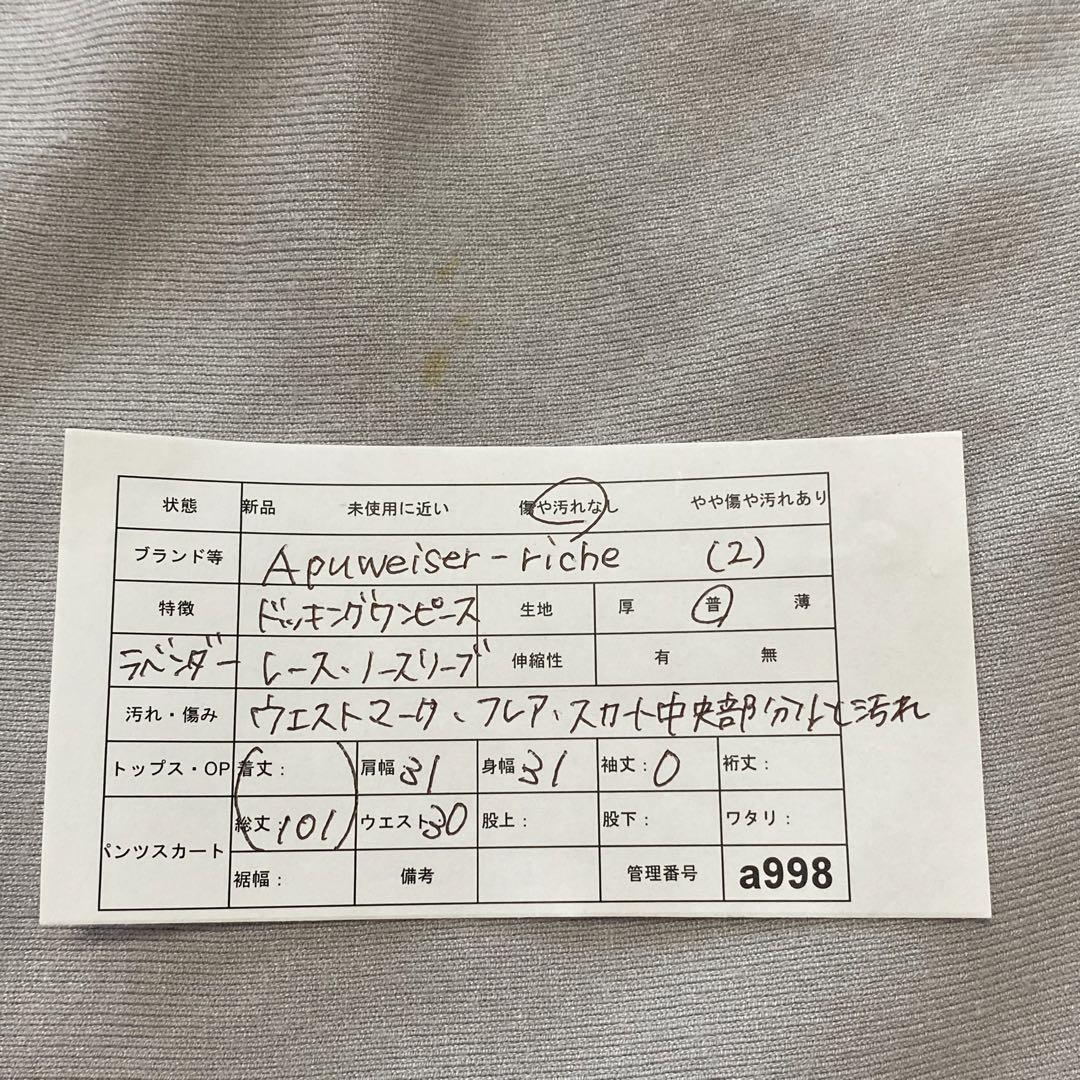 状態 新品 未使用に近い 傷や汚れなし やや傷や汚れあり
ブランド等 Apuweiser-riche (2)
特徴 ドッキングワンピース 生地 厚 普 薄
ラベンダー レース、ノースリーブ 伸縮性 有 無
汚れ・傷み ウエストマーク、フレア、スカート中央部分 汚れ
トップス・OP 着丈: 肩幅 31 身幅 31 袖丈: 0 裄丈:
総丈: 101 ウエスト: 30 股上: 股下: ワタリ:
パンツスカート
裾幅: 備考 管理番号 a998